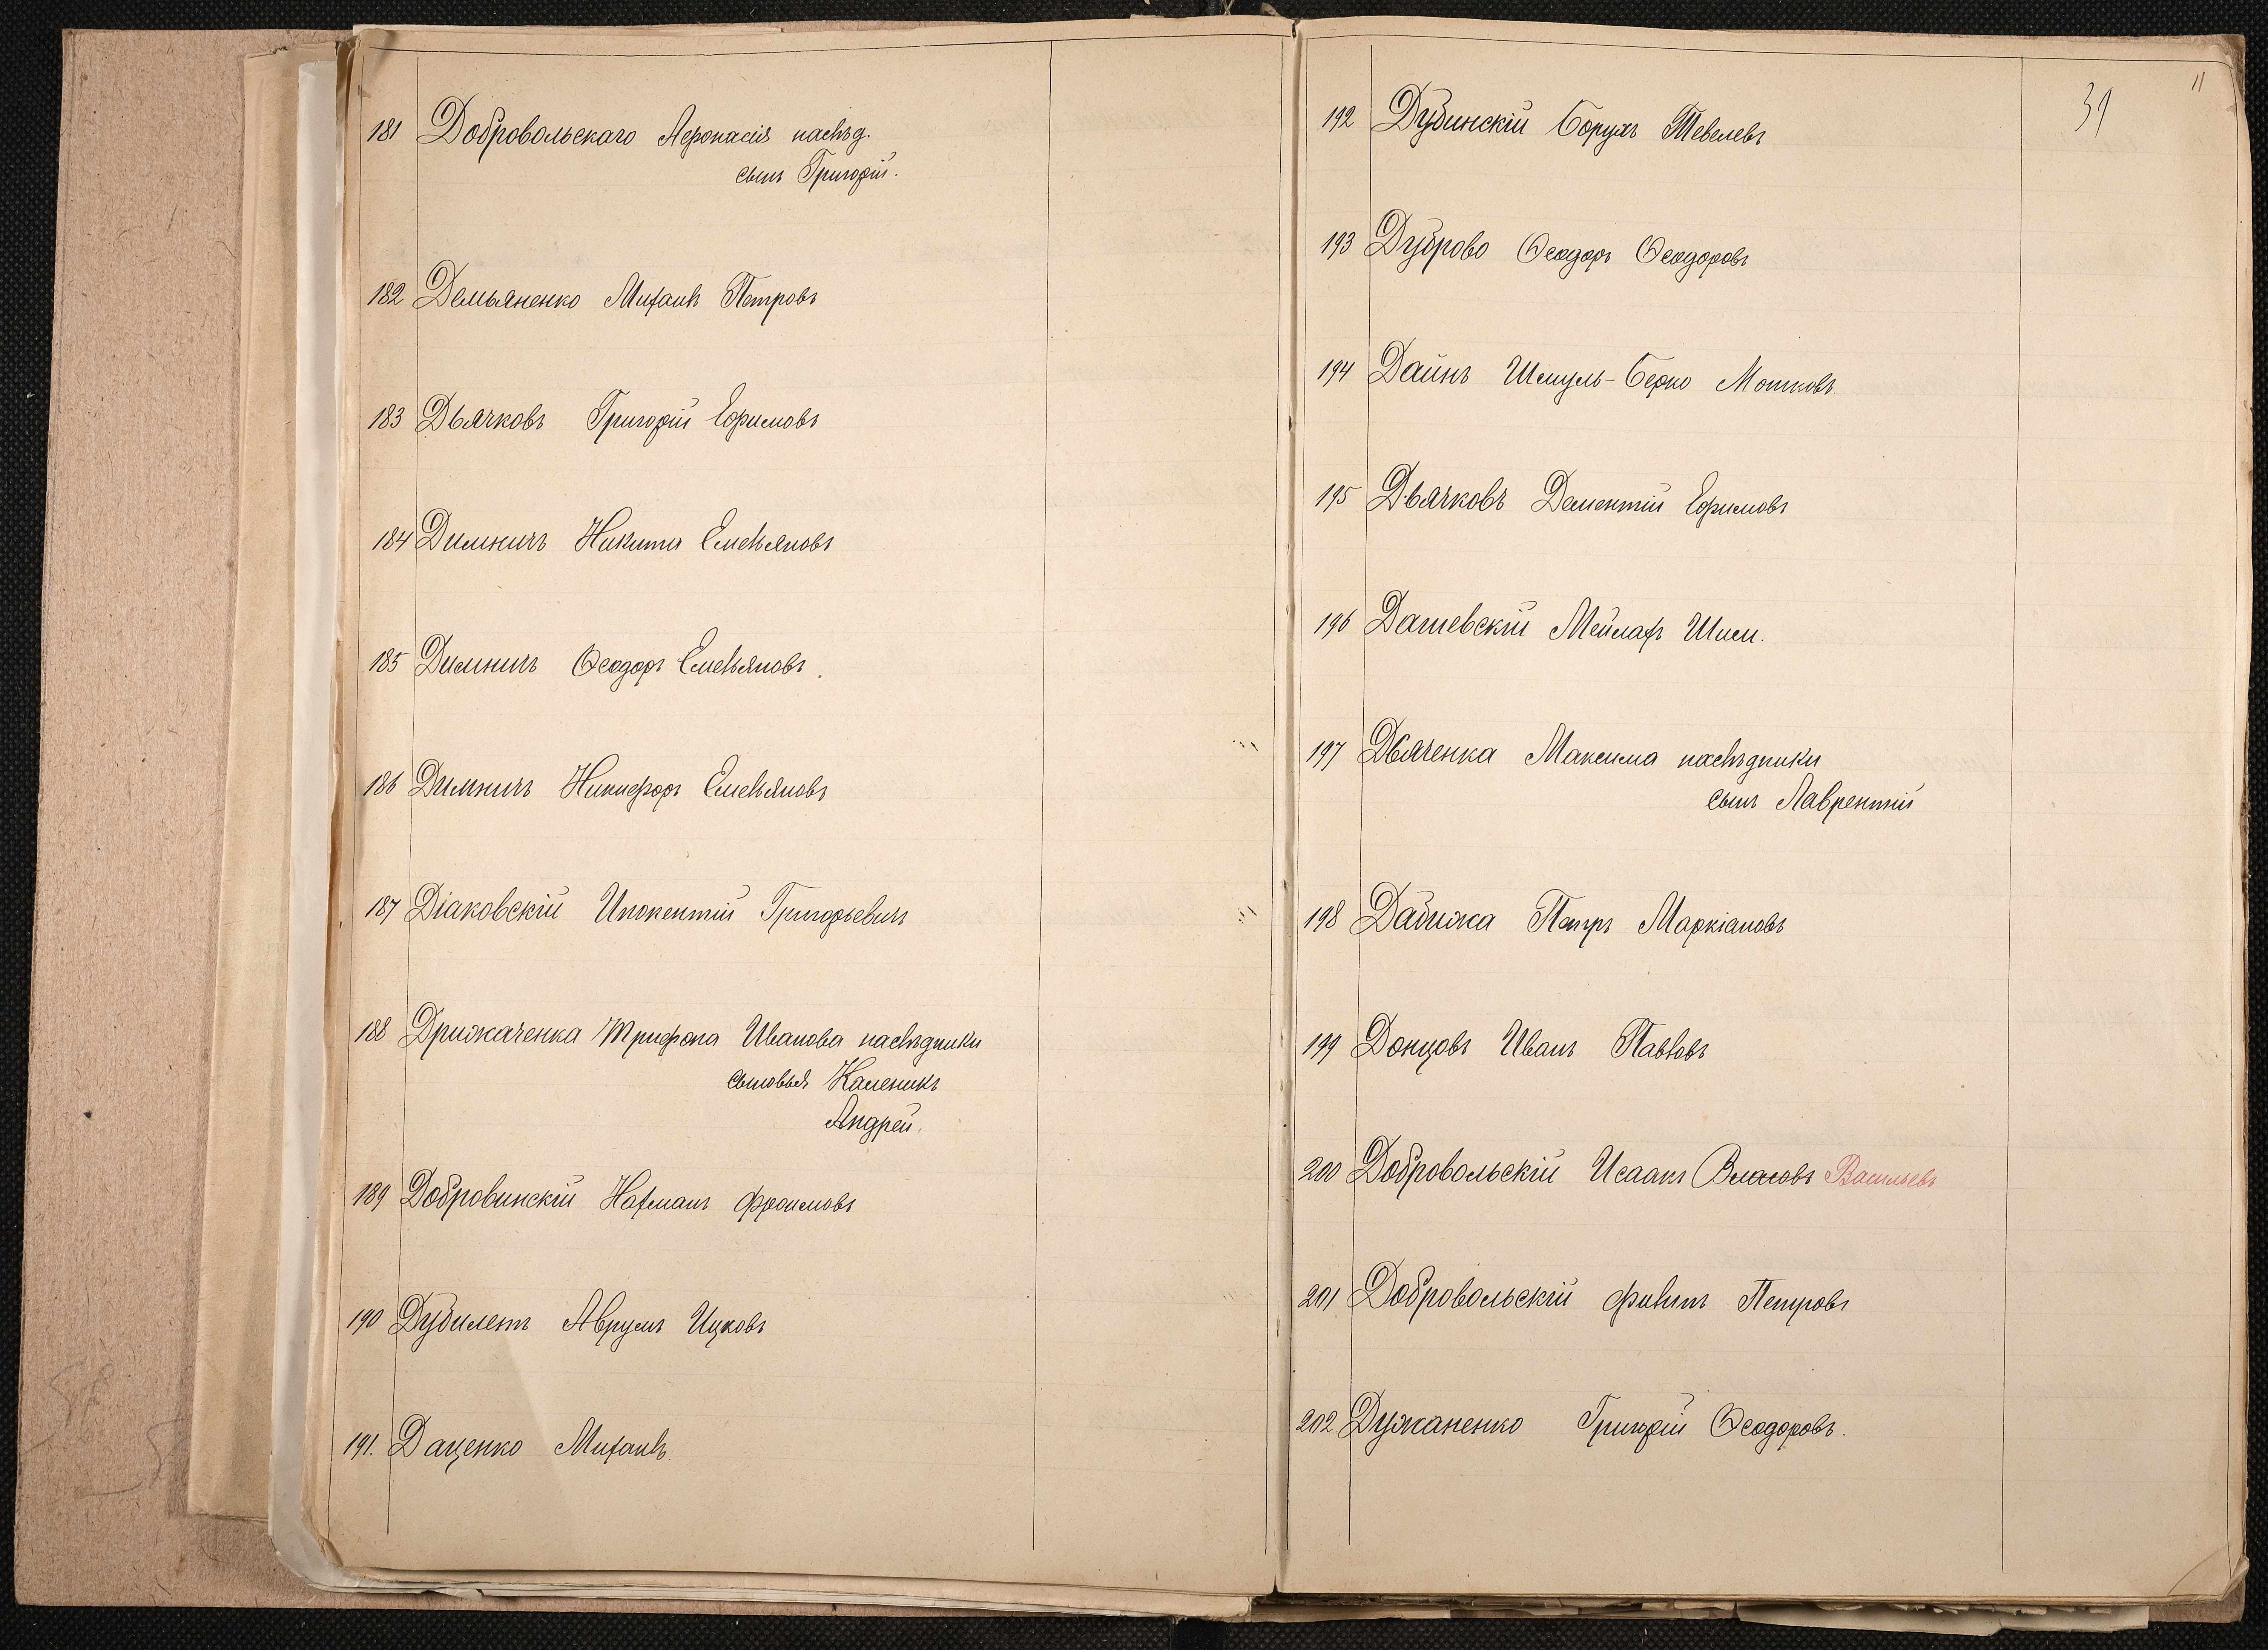 181 Добровольскаго Афонасія наслѣд.
сынъ Григорій.
182 Демьяненко Михаилъ Петровъ
183 Дьячковъ Григорій Ефимовъ
184 Димничъ Никита Емельяновъ
185 Димничъ Ѳеодоръ Емельяновъ.
186 Димничъ Никифоръ Емельяновъ
187 Діаковскій Инокентій Григорьевичъ
188 Дрижаченка Трифона Иванова наслѣдники
сыновья Каленикъ
Андрей.
189 Добровинскій Нахманъ Фроимовъ
190 Дубилетъ Аврумъ Ицковъ
191. Даценко Михаилъ
11
39
192 Дубинскій Борухъ Тевелевъ
193 Дуброво Ѳеодоръ Ѳеодоровъ
194 Дайнъ Шмуль-Берко Мошковъ.
195 Дьячковъ Дементій Ефимовъ
196 Дашевскій Мейлахъ Шим.
197 Дьяченка Максима наслѣдники
сынъ Лаврентій
198 Дабижа Петръ Маркіановъ
199 Донцовъ Иванъ Павловъ
200 Добровольскій Исаакъ Власовъ Васильевъ
201 Добровольскій Филипъ Петровъ
202 Дужаненко Григорій Ѳеодоровъ.